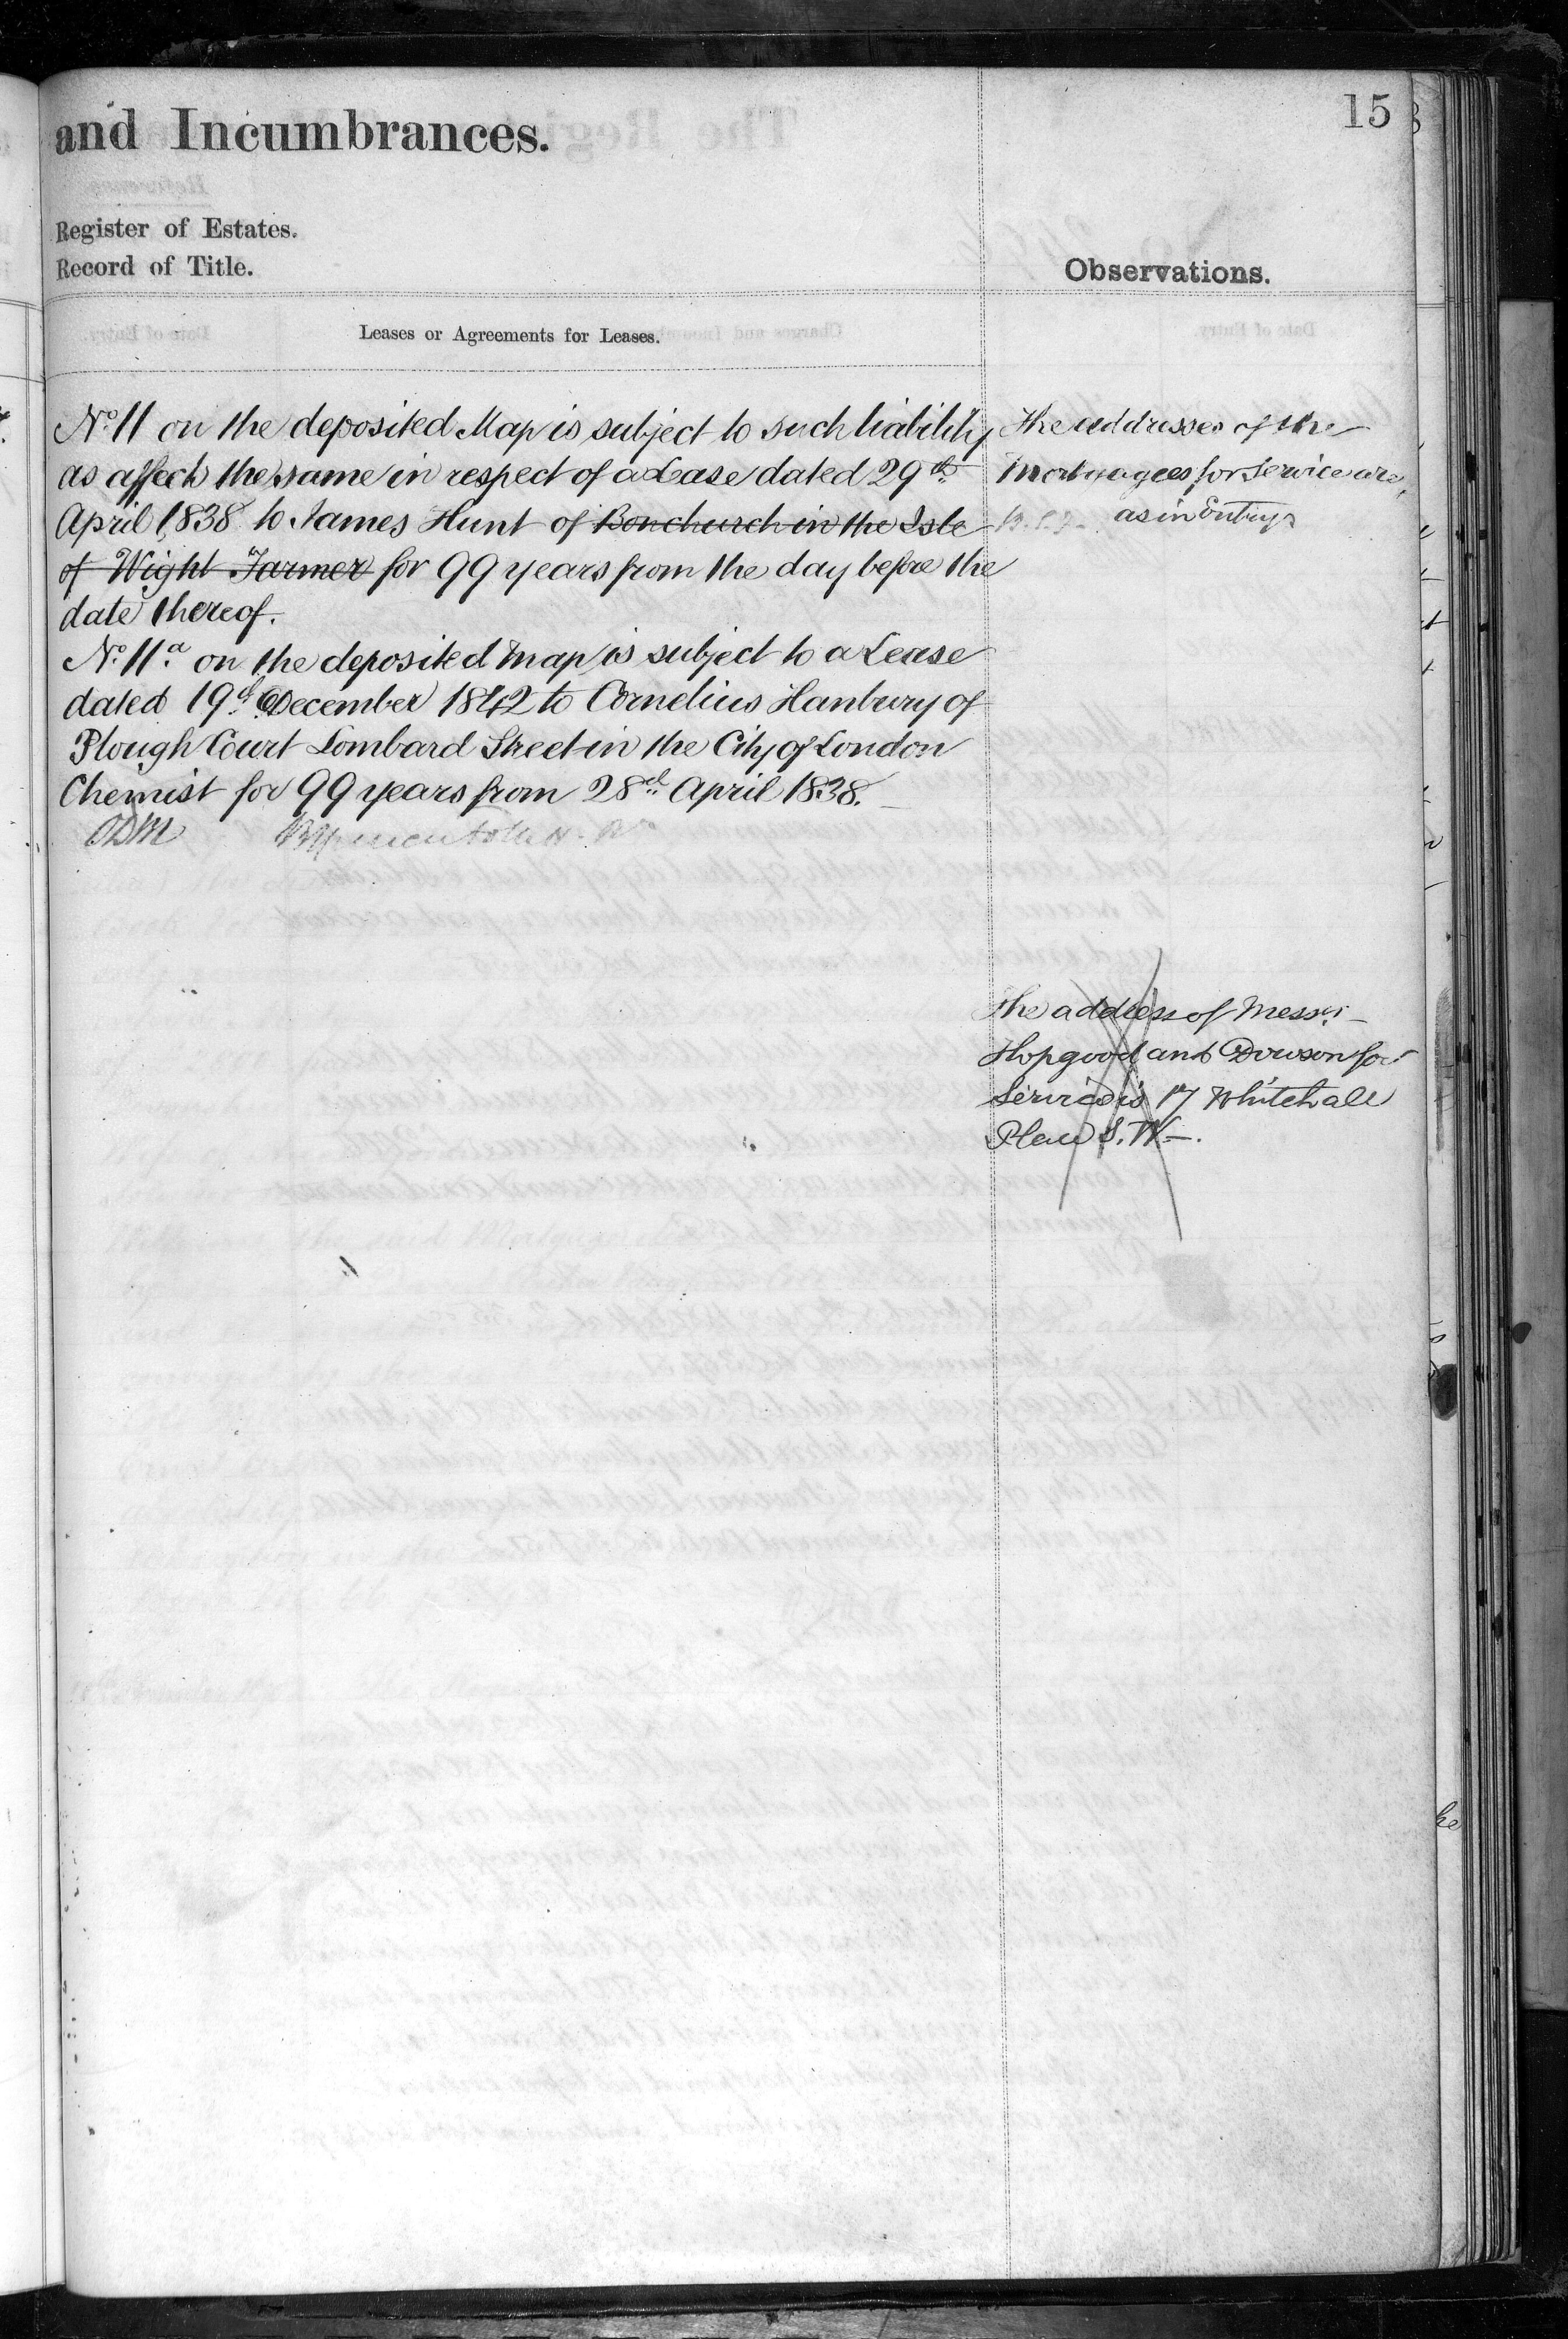 15
and Incumbrances.
Register of Estates.
Record of Title.
Observations.
Leases or Agreements for Leases.
No. 11 on the deposited Map is subject to such liability
as affects the same in respect of a Lease dated 29th
April 1838 to James Hunt of Bonchurch in the Isle
of Wight Farmer for 99 years from the day before the
date thereof.
No. 11a on the deposited Map is subject to a Lease
dated 19th December 1842 to Cornelius Hanbury of
Plough Court Lombard Street in the City of London
Chemist for 99 years from 28th April 1838.
The addresses of the
Mortgagees for Service are
as in Entry
The address of Messrs
Hopgood and Dowson for
Service is 17 Whitehall
Place S.W.
he